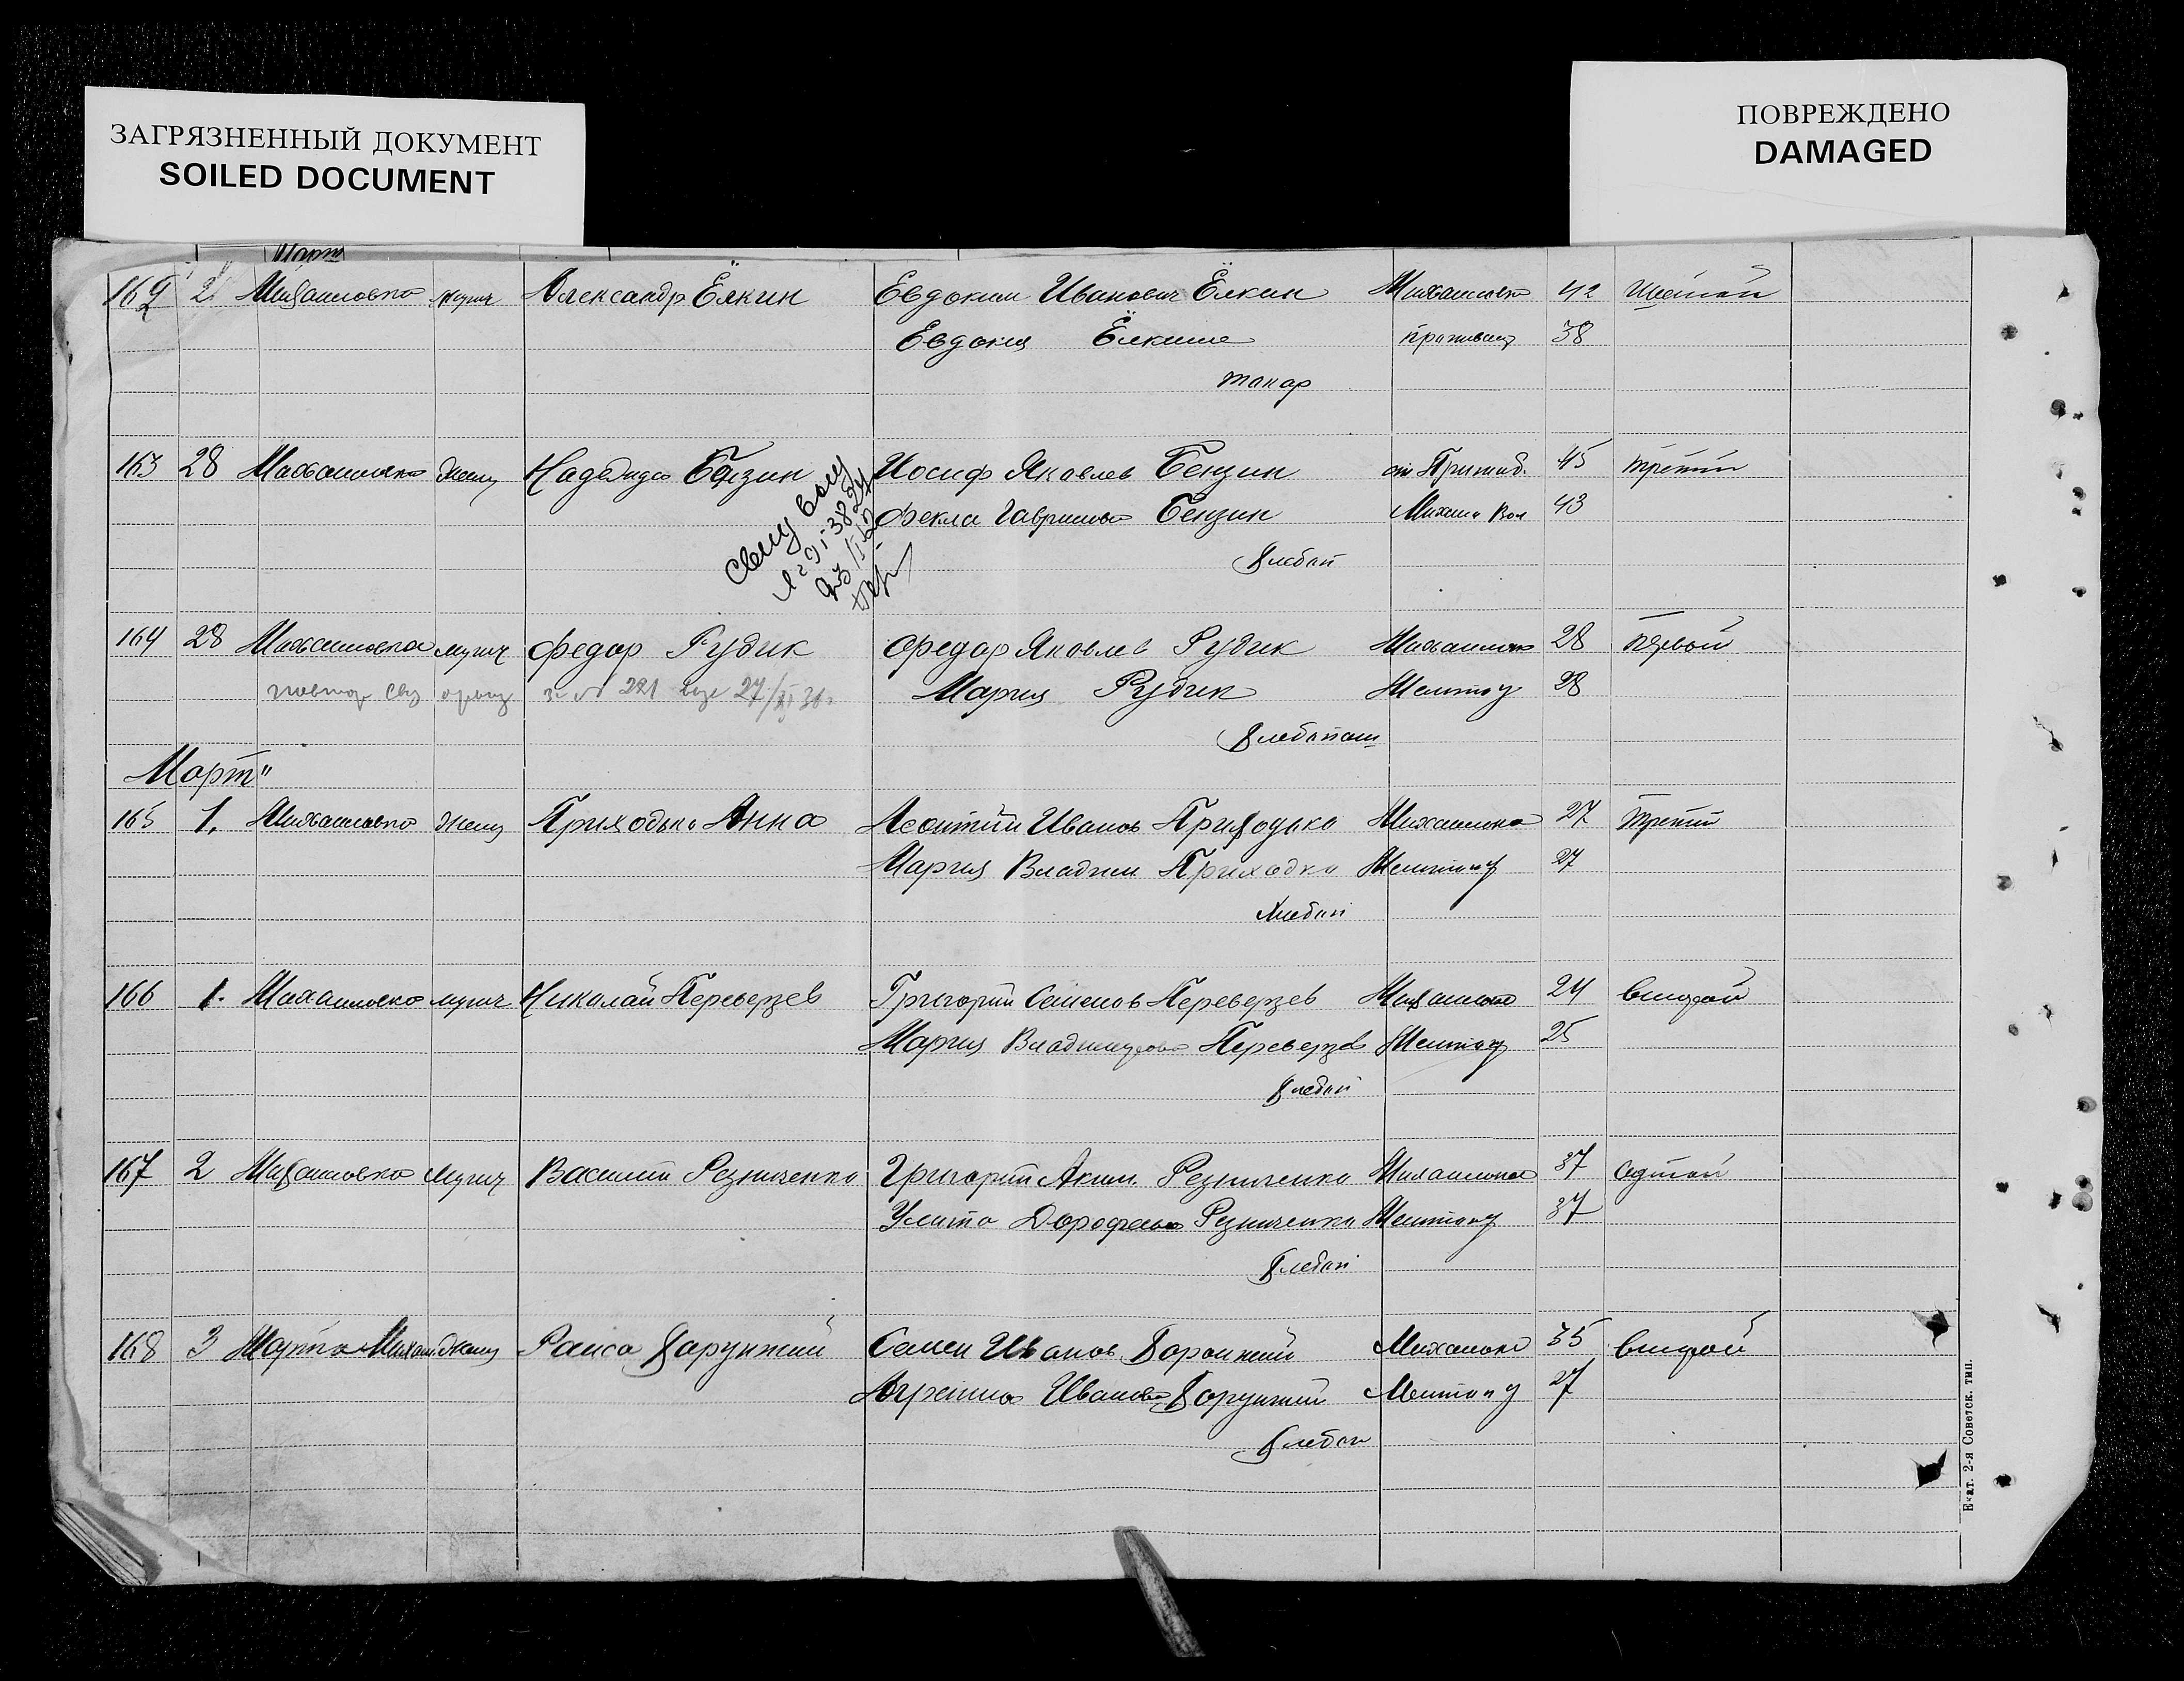 ЗАГРЯЗНЕННЫЙ ДОКУМЕНТ
SOILED DOCUMENT
ПОВРЕЖДЕНО
DAMAGED
Март
162 2 Михайловка мужч Александр Ёлкин Евдоким Иванович Ёлкин Михайловк 42 шестой
Евдокия Ёлкина проживащ 38
токар
163 28 Михайловка женщ Надежда Бензин Иосиф Яковлев Бензин 45 третий
Фекла Гаврилова Бензин Михайл Вол 43
Хлебоп
164 28 Михайловка мужч Федор Рудик Федор Яковлев Рудик Михайловк 28 первый
за № 221 27/XI 36 Мария Рудик 28
Хлебопаш
Март"
165 1. Михайловка женщ Приходько Анна Леонтий Иванов Приходько Михайловка 27 третий
Мария Владим Приходко 27
Хлебоп
166 1. Михайловка мужч Николай Переверзев Григорий Семенов Переверзев Михайловка 24 второй
Мария Владимирова Переверзев 25
Хлебоп
167 2 Михайловка мужч Василий Резниченко Григорий Аким. Резниченко Михайловка 37 седмой
Улита Дорофеева Резниченко 37
Хлебоп
168 3 Марта Михай женщ Раиса Харунжий Семен Иванов Хорунжий Михайловк 35 второй
Агрепина Иванова Хорунжий 27
Хлебоп
Екат. 2-я Советск. тип.